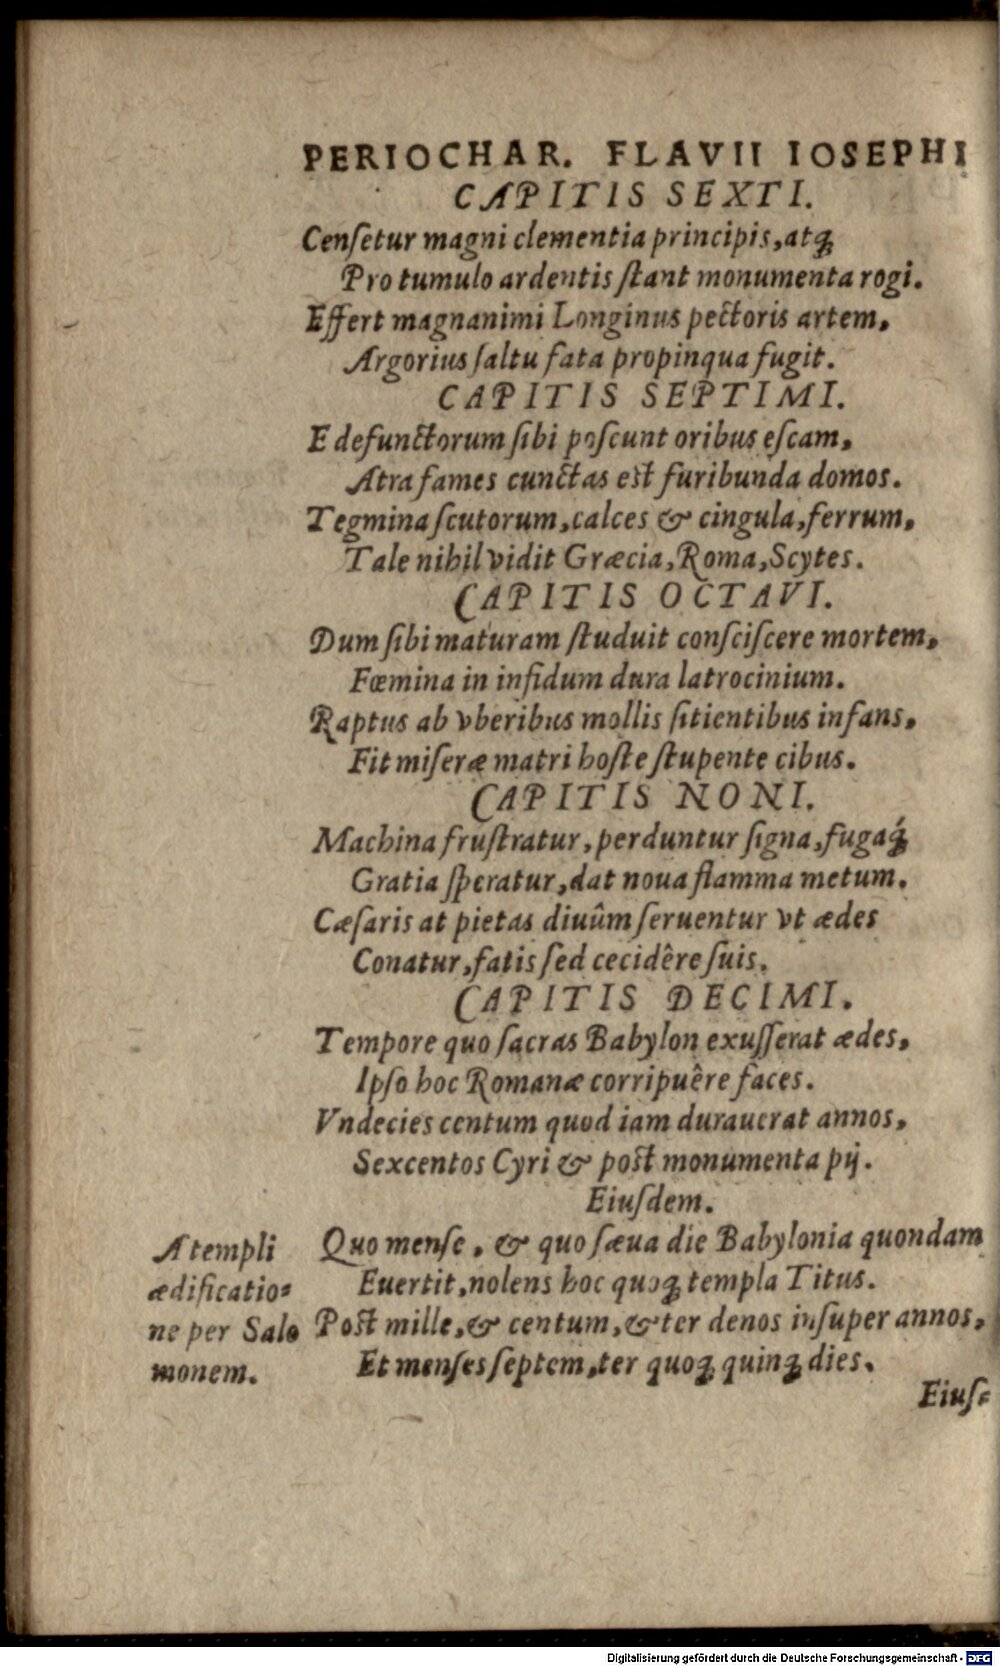 PERIOCHAR. FLAVII IOSEPHI
CAPITIS SEXTI.
Cenſetur magni clementia principis, atq́;
Pro tumulo ardentis ſtant monumenta rogi.
Effert magnanimi Longinus pectoris artem,
Argorius ſaltu fata propinqua fugit.
CAPITIS SEPTIMI.
E defunctorum ſibi poſcunt oribus eſcam,
Atra fames cunctas eſt furibunda domos.
Tegmina ſcutorum, calces & cingula, ferrum,
Tale nihil vidit Græcia, Roma, Scytes.
CAPITIS OCTAVI.
Dum ſibi maturam ſtuduit conſciſcere mortem,
Fœmina in infidum dura latrocinium.
Raptus ab vberibus mollis ſitientibus infans,
Fit miſeræ matri hoſte ſtupente cibus.
CAPITIS NONI.
Machina fruſtratur, perduntur ſigna, fugaq́;
Gratia ſperatur, dat noua flamma metum.
Cæſaris at pietas diuûm ſeruentur vt ædes
Conatur, fatis ſed cecidêre ſuis.
CAPITIS DECIMI.
Tempore quo ſacras Babylon exuſſerat ædes,
Ipſo hoc Romanæ corripuêre faces.
Vndecies centum quod iam durauerat annos,
Sexcentos Cyri & poſt monumenta pij.
Eiuſdem.
Quo menſe, & quo ſæua die Babylonia quondam
Euertit, nolens hoc quoq; templa Titus.
Poſt mille, & centum, & ter denos inſuper annos,
Et menſes ſeptem, ter quoq; quinq; dies.
A templi
ædificatio=
ne per Salo
monem.
Eiuſ=
Digitalisierung gefördert durch die Deutsche Forschungsgemeinschaft - DFG